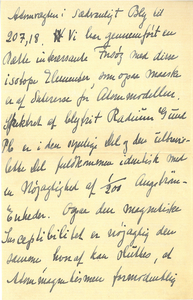 Atomvægten i sædvanligt Bly er
207,18. Vi har gennemført en
Række interessante Forsøg med disse
isotope Elementer som ogsaa
af Interesse for Atommodellen.
af blyfrit Radium G und
Pb er i den synlige del og den ultravio-
lette del fuldkommen identisk med
en Nøjagtighed af 1/200 Angström-
Enheder. Ogsaa den magnetiske
Susceptibilitet er nøjagtig den
samme hvoraf kan sluttes, at
Atommagnetismen formodentlig